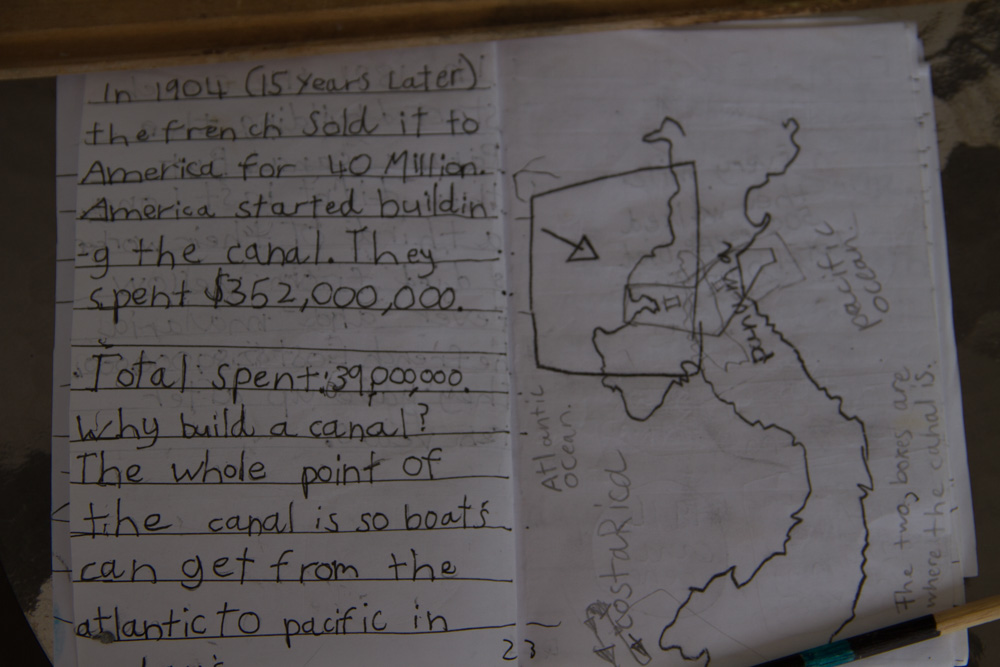 In 1904 (15 years Later)
the french sold it to
America for 40 Million.
America started buildin
-g the canal. They
spent $352,000,000.
Total spent: 39,000000.
Why build a canal?
The whole point of
the canal is so boats
can get from the
atlantic to pacific in
23
Atlantic
ocean.
CostaRica
Panama
pacific
ocean.
The two, boxes are
where the canal is.